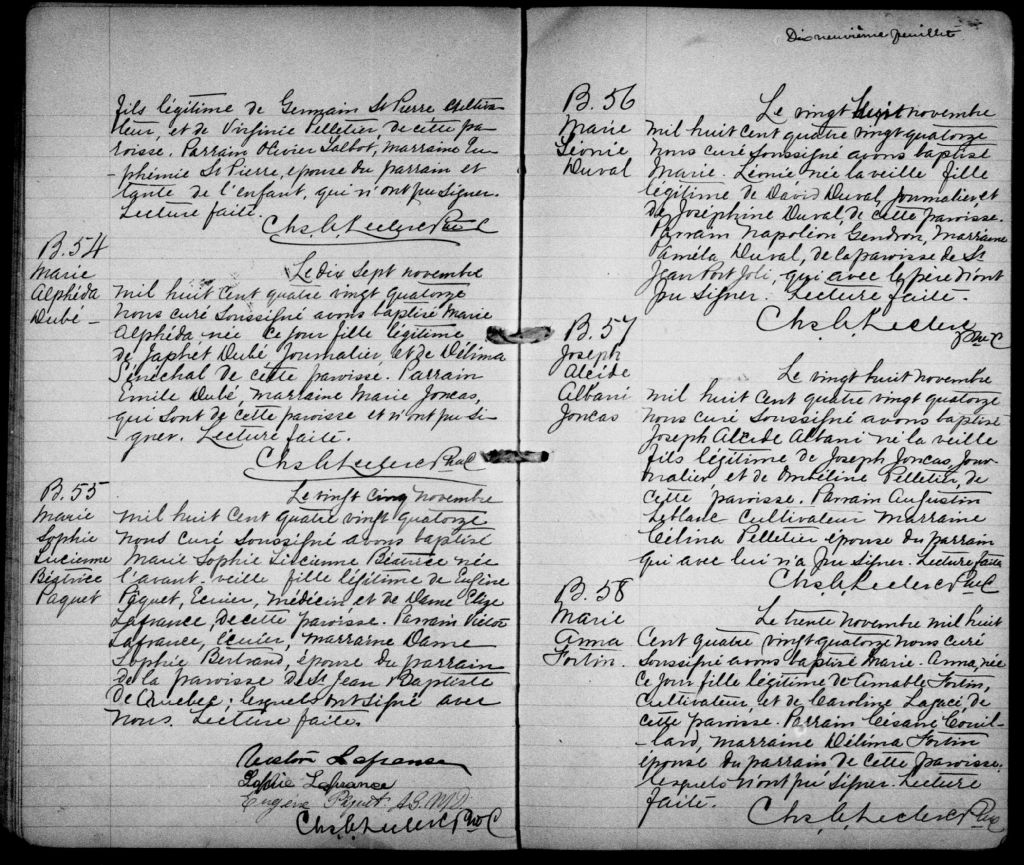 fils légitime de Germain St Pierre Cultiva-
teur, et de Virginie Pelletier, de cette pa-
roisse. Parrain Olivier Talbot, marraine Eu-
-phémie St Pierre, épouse du parrain et
tante de l'enfant, qui n'ont pu signer.
Lecture faite.
Chs. G. Leclerc Ptre C
B. 54
Marie
Alphéda
Dubé -
Le dix sept novembre
mil huit cent quatre vingt quatorze
nous curé soussigné avons baptisé Marie
Alphéda, née ce jour fille légitime
de Japhet Dubé Journalier et de Délima
Sénéchal de cette paroisse. Parrain
Emile Dubé, marraine Marie Joncas,
qui sont de cette paroisse et n'ont pu si-
-gner. Lecture faite.
Chs. G. Leclerc Ptre C
B. 55
Marie
Sophie
Lucienne
Béatrice
Paquet
Le vingt cinq novembre
mil huit cent quatre vingt quatorze
nous curé soussigné avons baptisé
Marie Sophie Lucienne Béatrice née
l'avant-veille fille légitime de Eugène
Paquet, Ecuier, médecin et de Dame Elize
Lafrance, de cette paroisse. Parrain Victor
Lafrance, écuier, marraine Dame
Sophie Bertrand, épouse du parrain
de la paroisse de St Jean Baptiste
de Québec; lesquels ont signé avec
nous. Lecture faite.
Lafrance
Sophie Lafrance
Eugène Paquet M.D.
Chs. G. Leclerc Ptre C
Dix neuvième feuillet
B. 56
Marie
Léonie
Duval
Le vingt huit novembre
mil huit cent quatre vingt quatorze
nous curé soussigné avons baptisé
Marie-Léonie née la veille fille
légitime de David Duval, Journalier, et
de Joséphine Duval, de cette paroisse.
Parrain Napoléon Gendron, Marraine
Améla Duval, de la paroisse de St
Jean Port Joli, qui avec le père n'ont
pu signer. Lecture faite.
Chs. G. Leclerc Ptre C
B. 57
Joseph
Alcide
Albani
Joncas
Le vingt huit novembre
mil huit cent quatre vingt quatorze
nous curé soussigné avons baptisé
Joseph Alcide Albani né la veille
fils légitime de Joseph Joncas, Jour-
nalier et de Ombéline Pelletier, de
cette paroisse. Parrain Augustin
Leblanc Cultivateur Marraine
Célina Pelletier épouse du parrain
qui avec lui n'a pu signer. Lecture faite
Chs. G. Leclerc Ptre C
B. 58
Marie
Anna
Fortin.
Le trente novembre mil huit
cent quatre vingt quatorze nous curé
soussigné avons baptisé Marie-Anna, née
ce jour fille légitime de Aimable Fortin,
cultivateur, et de Caroline Lagacé, de
cette paroisse. Parrain Césaire Couil-
-lard, marraine Délima Fortin
épouse du parrain de cette paroisse,
lesquels n'ont pu signer. Lecture
faite.
Chs. G. Leclerc Ptre C